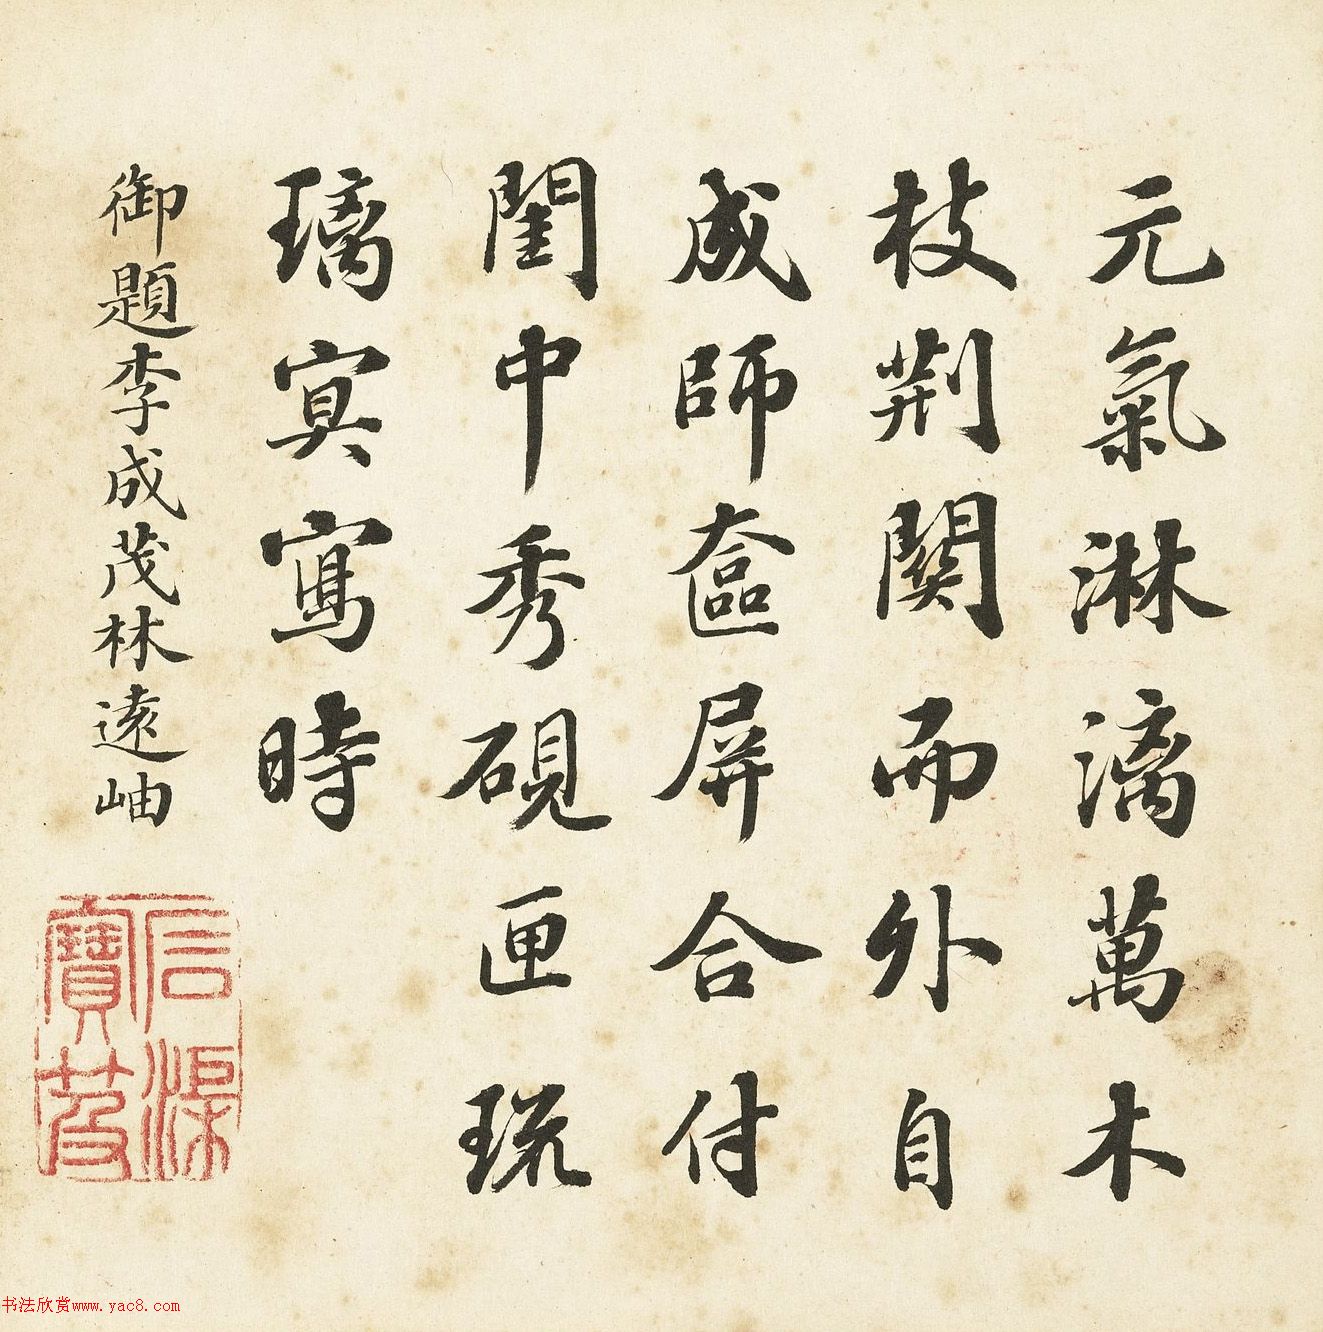 元氣淋漓萬木
枝荆關而外自
成師奩屏合付
閨中秀硯匣琉
璃㝠寫時
御題李成茂林遠岫
书法欣赏www.yac8.com